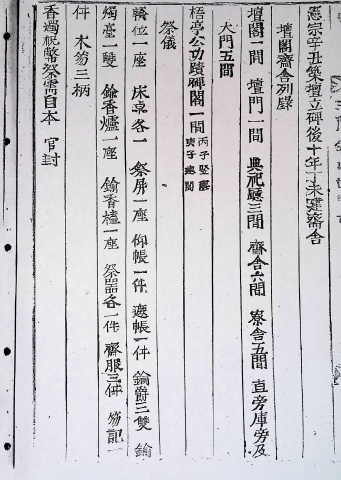 憲宗辛丑築壇立碑後十年丁未建齋舍
壇閣齋舍列錄
壇閣一間 壇門一間 典祀廳三間 齋舍六間 寮舍五間 直旁庫旁及
大門五間
梧亭公功蹟碑閣一間 丙子竪碑 庚子建閣
祭儀
轎位一座 床卓各一 祭屏一座 仰帳一件 遮帳一件 鍮爵三雙 鍮
燭臺一雙 鍮香爐一座 鍮香榼一座 祭器各一件 齋服三件 笏記一
件 木笏三柄
香燭祝幣祭需自本 官封